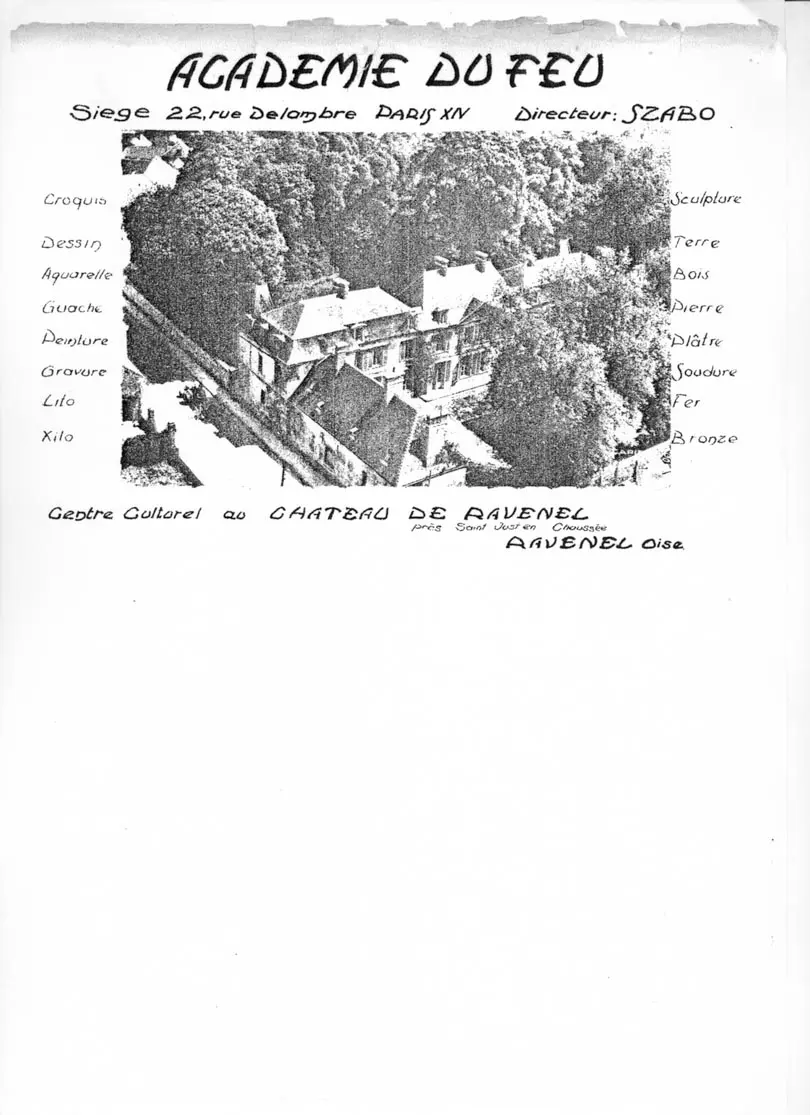 ACADEMIE DU FEU
Siege 22, rue Delambre PARIS XIV Directeur: SZABO
Croquis
Dessin
Aquarelle
Guache
Peinture
Gravure
Lito
Xilo
Sculpture
Terre
Bois
Pierre
Plâtre
Soudure
Fer
Bronze
Centre Culturel au CHATEAU DE RAVENEL
près Saint Just en Chaussée
RAVENEL Oise